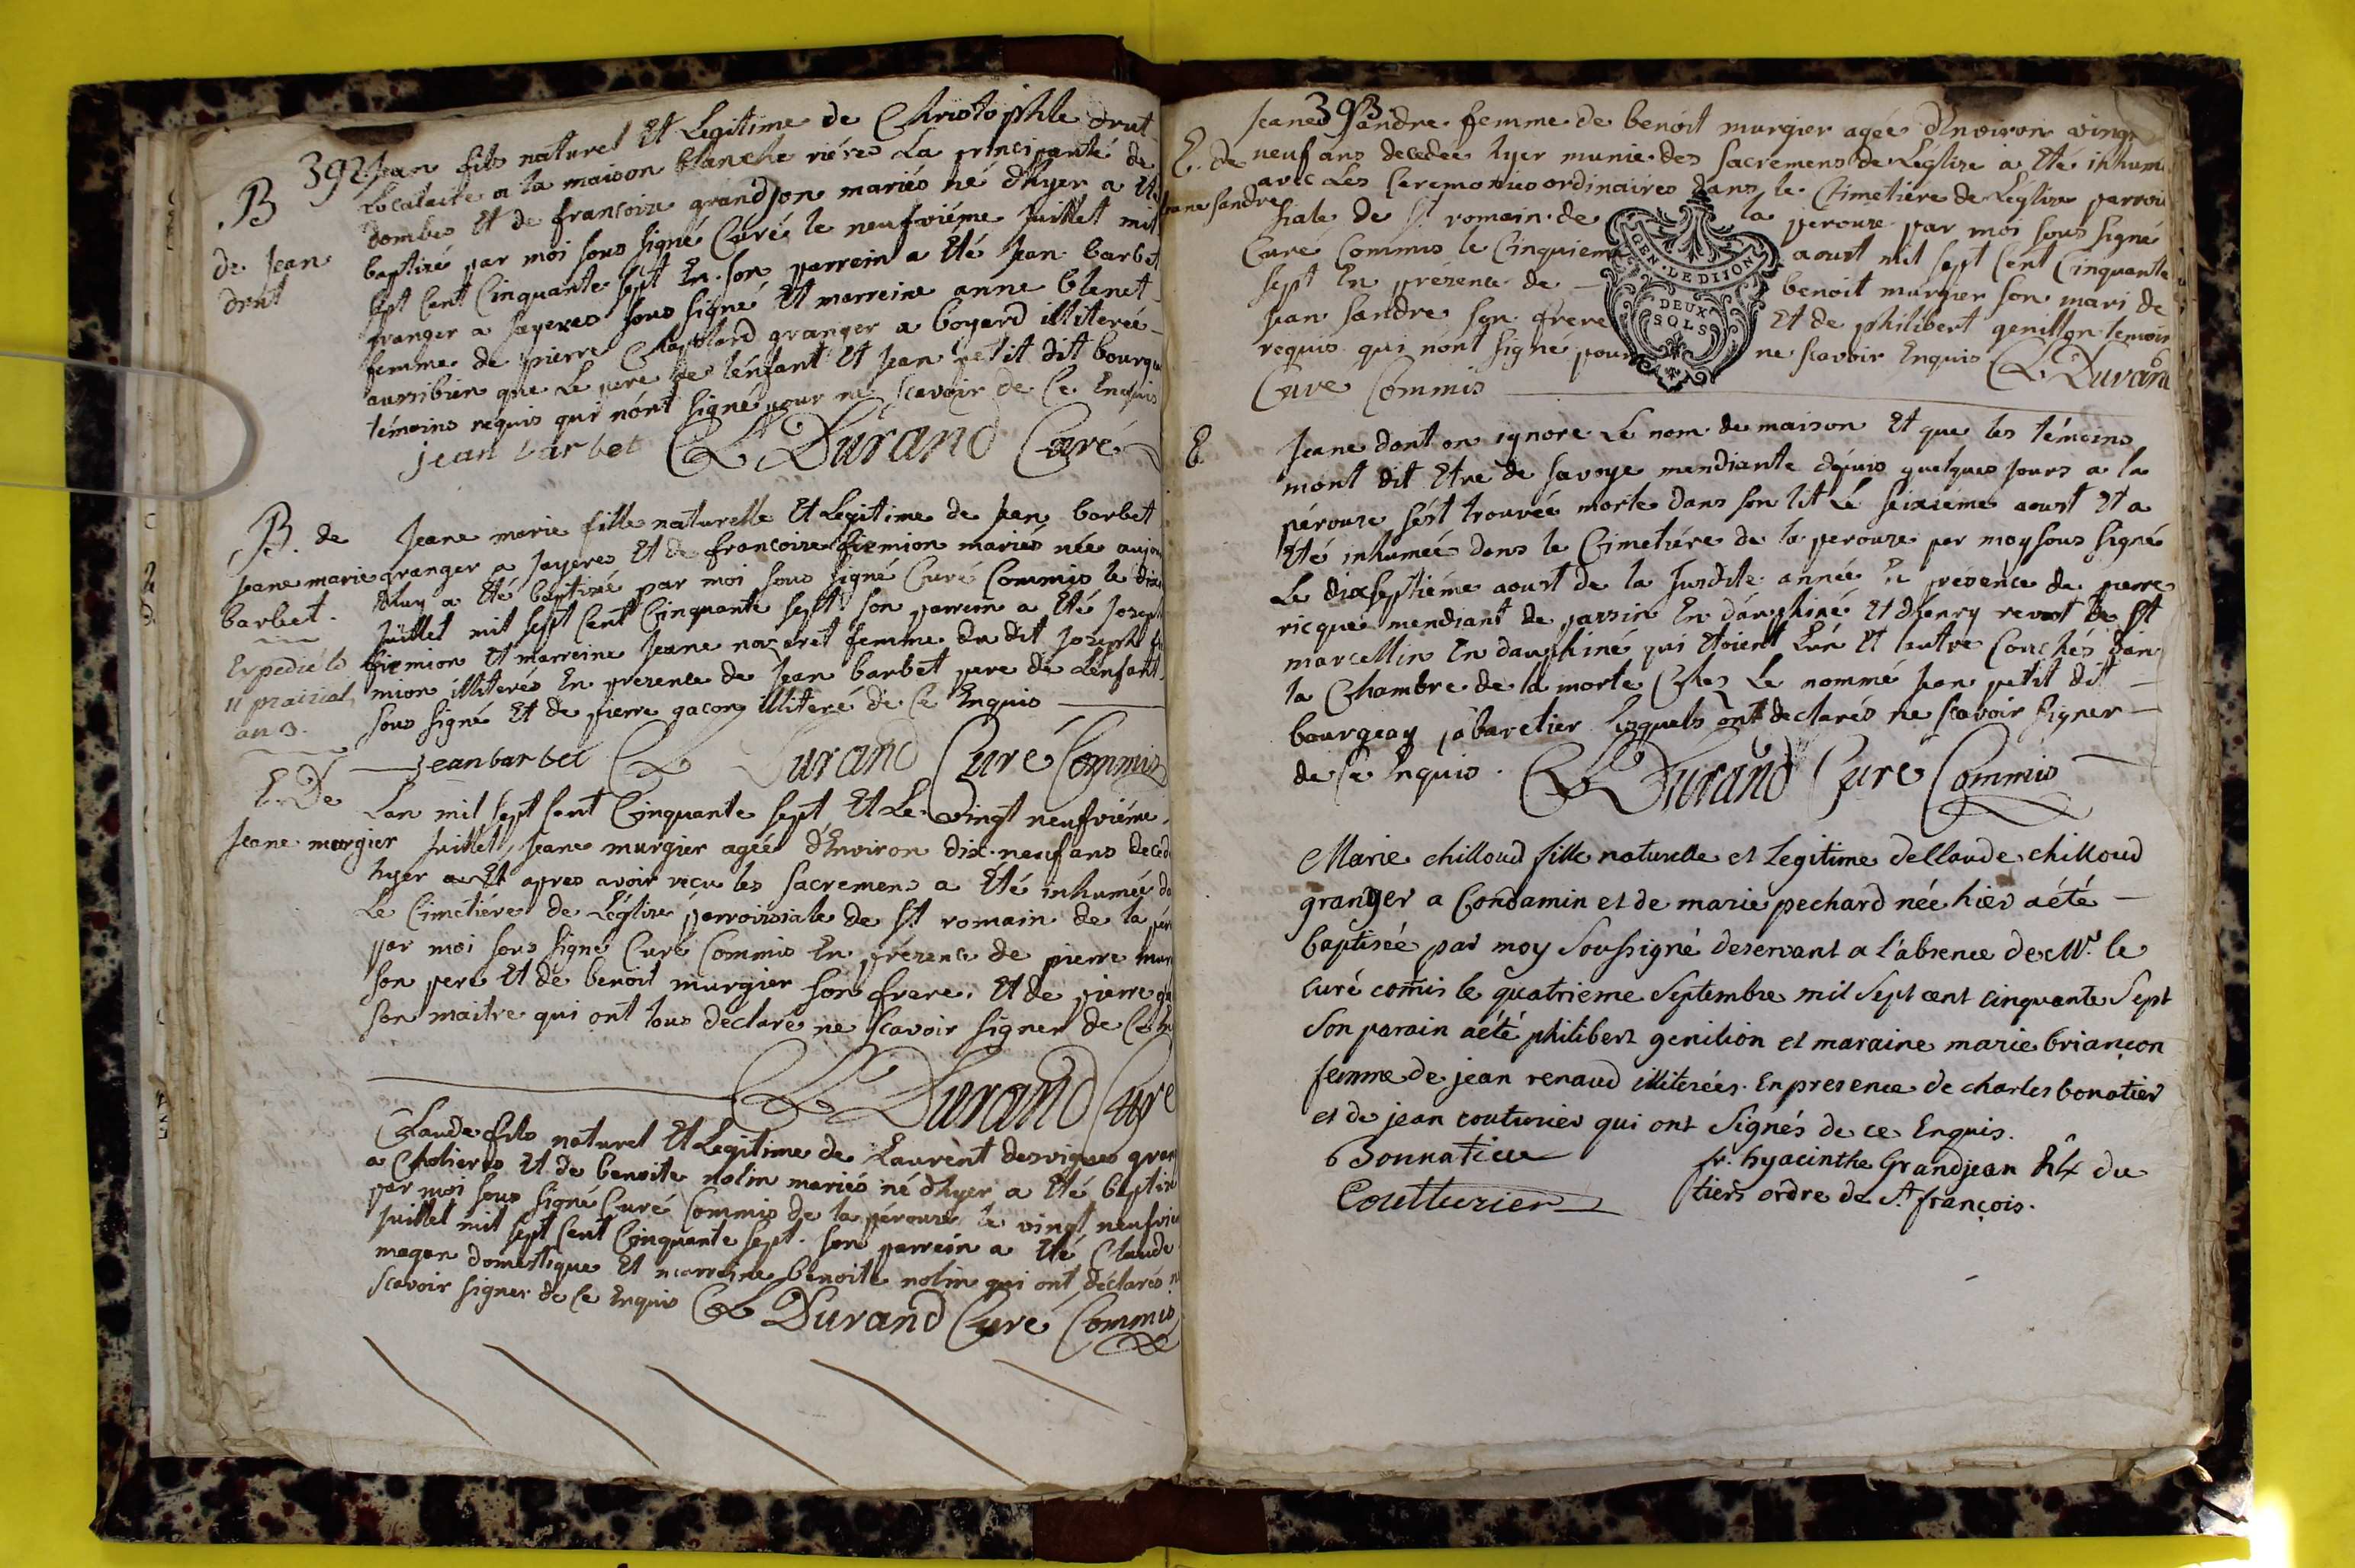 392
B
de Jean
drut
Jean fils naturel Et Legitime de Christophle drut
Localaite a la maison blanche riéres La principauté de
dombes Et de francoize grandjon mariés né d'hyer a Eté
baptizé par moi sous signé Curé le neufviéme Juillet mil
sept Cent Cinquante sept En. son parrein a Eté Jean barbet
granger a Jayeres sous signé Et marreine anne blenet
femme de pierre granger a boyard illiterée
aussibien que Le pere de l'énfant Et Jean petit dit bourg
témoins requis qui nónt signé pour ne sçavoir de Ce Enquis
jean barbet Durand Curé
B. de
Jeane marie
barbet.
Expedié le
11 prairial
an 3.
Jeane marie fille naturelle Et Legitime de Jean barbet
granger a Jayeres Et de francoize firmion mariés née aujour
dhuy a Eté baptizé par moi sous signé Curé Commis le
Juillet mil sept Cent Cinquante sept son parrein a Eté Joseph
firmion Et marreine Jeane nozeret femme du dit Joseph fir
mion illiterés En prezence de Jean barbet pere de L'enfant
sous signé Et de pierre gacon illiteré de Ce Enquis
jean barbet Durand Curé Commis
E. De
Jeane murgier
Lan mil sept sent Cinquante sept Et Le vingt neufviéme
Juillet, Jeane murgier agée d'Environ dix-neuf ans deced
hyer Et apres avoir reçu les sacremens a Eté inhumée da
Le Cimetiére de L'église parroissiale de St romain de la per
par moi sous signé Curé Commis En prézence de pierre mur
son pere Et de benoit murgier son frere. Et de pierre
son maitre qui ont tous declaré ne sçavoir signer de Ce En
Durand Curé
Claude fils naturel Et Legitime de Laurent desvignes gran
a Cholieres Et de benoite nolin mariés né d'hyer a Eté baptiz
par moi sous signé Curé Commis de la pérouze le vingt neufvie
Juillet mil sept Cent Cinquante sept. son parrein a Eté Claude
magan domestique Et marreine benoite nolin qui ont déclarés n
sçavoir signer de Ce Enquis Durand Curé Commis
393
E. de
Jeane sandre
Jeane sandre femme de benoit murgier agée d'Environ vingt
neuf ans decedée hyer munie des sacremens de L'église a Eté inhum
avec Les Ceremonies ordinaires dans le Cimetiere de L'église parrois
siale de St romain de la perouze par moi sous signé
Curé Commis le Cinquieme aoust mil sept Cent Cinquante
sept En prézence de benoit murgier son mari de
Jean sandre son frere Et de philibert genillon témoin
requis qui nónt signé pour ne sçavoir Enquis Durand
Cure Commis
GEN · DE DIJON
DEUX
SOLS
E
Jeane dont on ignore Le nom de maison Et que les témoins
mónt dit Etre de savoye mendiante dépuis quelques jours a la
pérouze sést trouvée morte dans son lit Le seizieme aoust Et a
Eté inhumée dans le Cimetiére de la perouze par moy sous signé
Le dixseptiéme aoust de la susdite année En présence de pierre
ricque mendiant de parzin En dauphiné Et d'henry revot de St
marcellin En dauphiné qui Etoient L'un Et l'autre Couchés dan
la Chambre de la morte Chez Le nommé Jean petit dit
bourgeay cabaretier Lesquels ont declarés ne sçavoir signer
de Ce Enquis. Durand Curé Commis
Marie chilloud fille naturelle et Legitime de Claude chilloud
granger a Condamin et de marie pechard née hier a été
baptisée par moy Soussigné deservant a l'absence de Mr. le
curé com̃is le quatrieme Septembre mil Sept cent cinquante Sept
Son parain a été philibert genilion et maraine marie briançon
femme de jean renaud illiterées. En presence de charles bonatier
et de jean couturier qui ont Signés de ce Enquis.
Bonnatier
Coutturier
fr. hyacinthe Grandjean du
tiers ordre de St. françois.